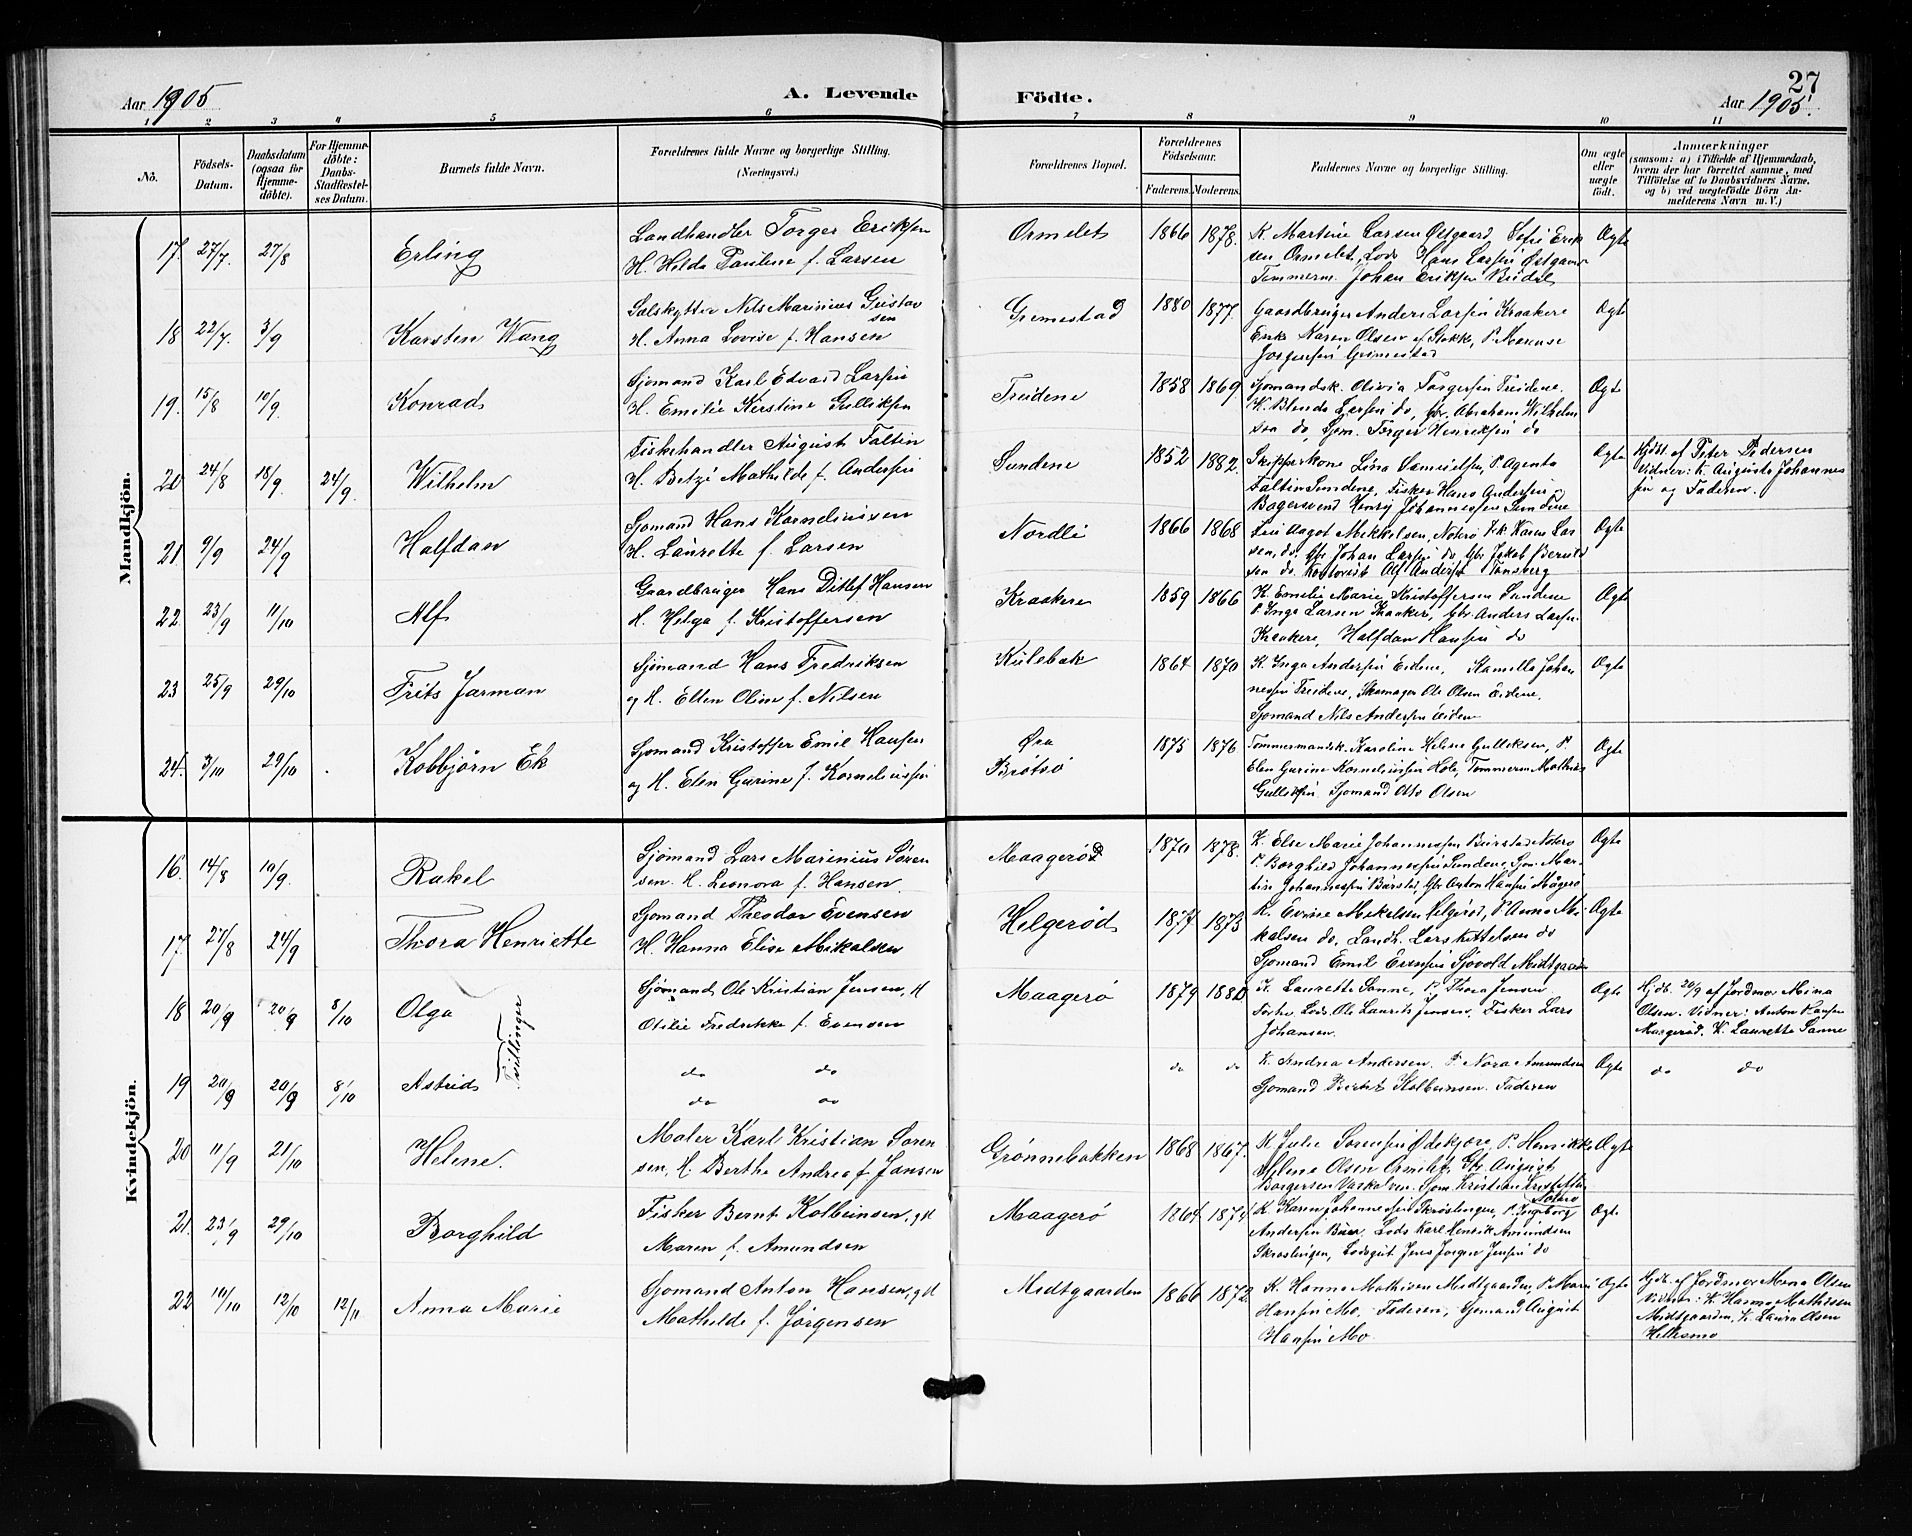 27
Aar 1905 A. Levende Födte. Aar 1905.
1 2 3 4 5 6 7 8 9 10 11
No.
Födsels-Datum.
Daabsdatum (ogsaa for Hjemmedøbte).
For Hjemmedøbte: Daabs-Stadfæstelses Datum.
Barnets fulde Navn.
Forældrenes fulde Navne og borgerlige Stilling. (Næringsvei.)
Forældrenes Bopæl.
Forældrenes Födselsaar.
Faderens. Moderens.
Faddernes Navne og borgerlige Stilling.
Om ægte eller uægte födt.
Anmærkninger
(saasom: a) i Tilfælde af Hjemmedaab, hvem der har forrettet samme, med Tilföielse af to Daabsvidners Navne, og b) ved uægtefödte Börn Anmelderens Navn m. V.)
Mandkjön.
17. 27/7. 27/8 Erling
Landhandler Torger Eriksen
H. Hilda Pauline f. Larsen
Ormelet 1866 1878.
K. Martine Larsen Østgaard, Sofie Erik
sen Ormelet, Lods Hans Larsen Østgaard
Tømmerm. Johan Eriksen Budal
Ægte
18 22/7. 3/9 Karsten Wang
Sælskytter Nils Marinius Gustav
sen
H. Anna Lovise f. Hansen
Grimestad 1880 1877.
Gaardbruger Anders Larsen Kraakere
Enke Karen Olsen af Stokke, P. Marense
Jørgensen Grimestad
Ægte
19. 15/8 10/9. Konrad
Sjømand Karl Edvard Larsen
H. Emilie Kirstine Gulliksen
Treidene 1858 1869.
Sjømandsk. Olivia Torgersen Treidene,
K. Blenda Larsen do, Gbr. Abraham Wilhelm
sen do, Sjøm. Torger Henriksen do
Ægte
20 24/8 18/9. 24/9. Wilhelm
Fiskehandler August Faltin
H. Betzi Mathilde f. Andersen
Sundene 1852 1882.
Skipperkone Lina Samuelsen, P. Agenta
Faltin Sundene, Fisker Hans Andersen,
Bagersvend Henry Johannessen Sundene
Ægte
Hjdbt. af Peter Pedersen
Vidner: K. Augusta Johannes
sen og Faderen.
21 9/9 24/9 Halfdan
Sjømand Hans Korneliusen
H. Laurette f. Larsen
Nordli 1866 1868
Fru Aagot Mikkelsen, Nøterø, Karen Lar
sen, do. Johan Larsen do Gbr. Jakob
sen do. Alf Andersen Tønsberg
Ægte
22 23/9 11/10 Alf
Gaardbruger Hans Ditlef Hansen
H. Helga f. Kristoffersen
Kraakere 1859 1866
K. Emelie Marie Kristoffersen Sundene
P. Inga Larsen Kraakere, Gbr. Anders Larsen
Kraakere, Halfdan Hansen do
Ægte
23 25/9 29/10 Frits Jarman
Sjømand Hans Fredriksen
og H. Ellen Oline f. Nilsen
Kulebak 1864 1870
K. Inga Andersen Eidene, Kamilla Johan
nessen Treidene, Skomager Ole Olsen Eidene,
Sjømand Nils Andersen Eidene
Ægte
24. 3/10 29/10 . Kobbjörn Ek
Sjømand Kristoffer Emil Hansen
og H. Elen Gurine f. Korneliussen
Øra
Brøtsø 1875 1876
Tømmermandsk. Karoline Helene Gulliksen, P.
Elen Gurine Korneliussen Hole, Tømmerm. Mathias
Gulliksen. Sjømand Otto Olsen
Ægte
Kvindekjön.
16. 14/8 10/9. Rakel
Sjømand Lars Marinius Søren
sen. H. Leonora f. Hansen.
Maagerø 1870 1878.
K. Else Marie Johannessen Buerstad Nøterø
P. Borghild Johannessen Sundene, Sjøm. Mar-
tin Johannessen Burstad, Gbr Anton Hansen Mågerø
Ægte
17. 27/8 24/9 Thora Henriette
Sjømand Theodor Evensen
H. Hanna Elise Mikalsen
Helgerød 1877 1873
K. Evine Mikalsen Helgerød, P. Anna Mi-
kalsen do, Landh. Lars Kittelsen do
Sjømand Emil Evensen Sjøvold, Midtgaarden
Ægte
18 20/9 20/9 8/10 Olga
Tvillinger
Sjømand Ole Kristian Jensen, H
Otilie Fredrikke f. Evensen
Maagerø 1879 1880
K. Laurette Sanne, P. Thora Jensen
Lods. Ole Laurits Jensen, Fisker Lars
Johansen.
Ægte
Hjdb. 20/9 af Jordmor Mina
Olsen. Vidner: Anton Hansen
Maagerød. K. Laurette Sanne
19 20/9 20/9 8/10 Astrid
do do
do do
do do
K. Andrea Andersen. P. Nora Amundsen
Sjømand Kolbeinsen. Faderen
Ægte do do
20 11/9 21/10 Helene.
Maler Karl Kristian Søren
sen, H. Berthe Andrea f. Jansen
Grønnebakken 1868 1867.
K. Julie Sørensen Ødekjære, P. Henrikke
Helene Olsen Ormelet, Gbr. August
Borgersen Vaskalven. Sjøm. Kristian Kristoffersen
Nøterø
Ægte
21. 23/9 29/10 Borghild
Fisker Bernt Kolbeinsen, gd
Maren f. Amundsen
Maagerø 1864 1874
K. Karen Johannessen Skrøslingen, P. Ingeborg
Andersen Buer, Lods Karl Henrik Amundsen
Skrøslingen, Lodsgut Jens Jørgen Jensen do
Ægte
22 10/10 12/10 12/11 Anna Marie
Sjømand Anton Hansen, gd
Mathilde f. Jørgensen
Midtgaarden 1866 1872
K. Hanna Mathisen Midtgaarden, P. Marie
Hansen Mo, Faderen, Sjømand August
Hansen Mo.
Ægte
Hjdb. af Jordmor Mina Olsen
Vidner: K. Hanna Mathisen
Midtgaarden, K. Laura Olsen
Hellesmo